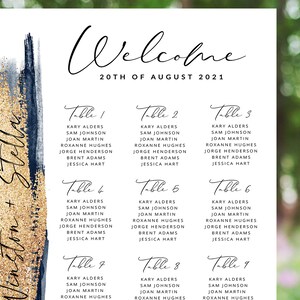 Welcome
20TH OF AUGUST 2021
Table 1
KARY ALDERS
SAM JOHNSON
JOAN MARTIN
ROXANNE HUGHES
JORGE HENDERSON
BRENT ADAMS
JESSICA HART
Table 2
KARY ALDERS
SAM JOHNSON
JOAN MARTIN
ROXANNE HUGHES
JORGE HENDERSON
BRENT ADAMS
JESSICA HART
Table 3
KARY ALDERS
SAM JOHNSON
JOAN MARTIN
ROXANNE HUGHES
JORGE HENDERSON
BRENT ADAMS
JESSICA HART
Table 4
KARY ALDERS
SAM JOHNSON
JOAN MARTIN
ROXANNE HUGHES
JORGE HENDERSON
BRENT ADAMS
JESSICA HART
Table 5
KARY ALDERS
SAM JOHNSON
JOAN MARTIN
ROXANNE HUGHES
JORGE HENDERSON
BRENT ADAMS
JESSICA HART
Table 6
KARY ALDERS
SAM JOHNSON
JOAN MARTIN
ROXANNE HUGHES
JORGE HENDERSON
BRENT ADAMS
JESSICA HART
Table 7
KARY ALDERS
SAM JOHNSON
JOAN MARTIN
ROXANNE HUGHES
Table 8
KARY ALDERS
SAM JOHNSON
JOAN MARTIN
ROXANNE HUGHES
Table 9
KARY ALDERS
SAM JOHNSON
JOAN MARTIN
ROXANNE HUGHES